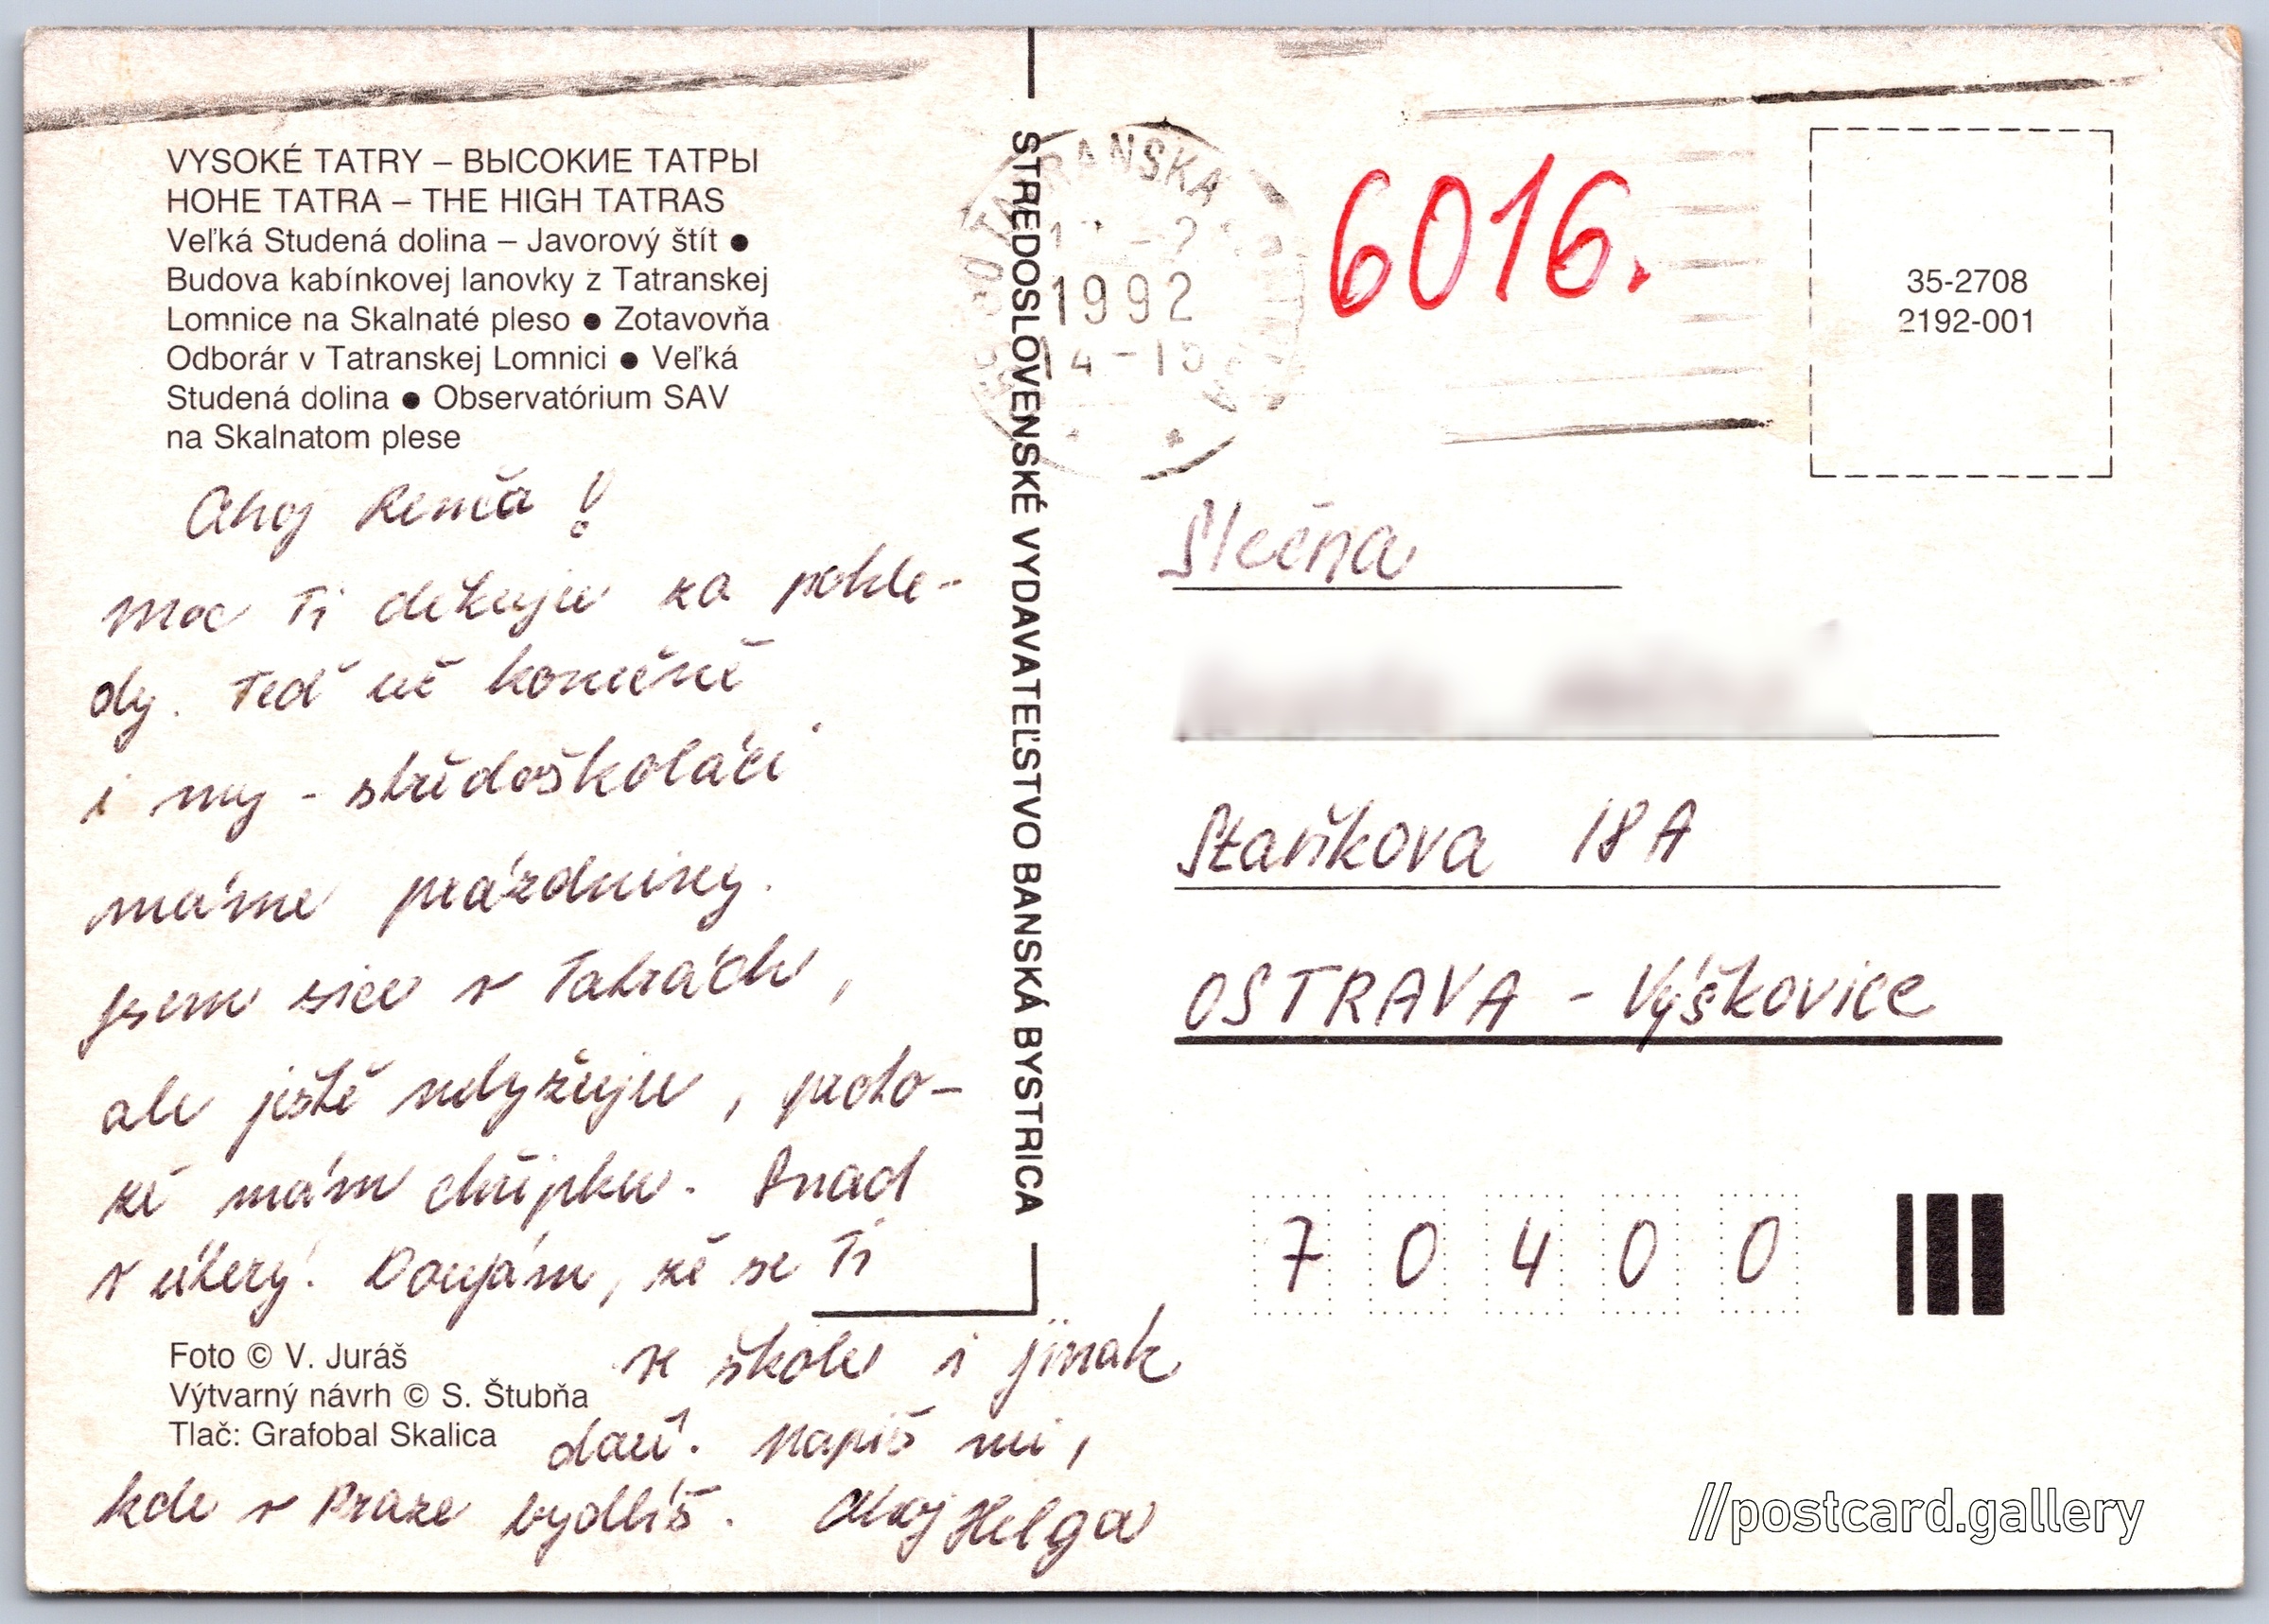 VYSOKÉ TATRY – ВЫСОКИЕ ТАТРЫ
HOHE TATRA – THE HIGH TATRAS
Veľká Studená dolina – Javorový štít ●
Budova kabínkovej lanovky z Tatranskej
Lomnice na Skalnaté pleso ● Zotavovňa
Odborár v Tatranskej Lomnici ● Veľká
Studená dolina ● Observatórium SAV
na Skalnatom plese
Ahoj Renča!
Moc Ti děkuju za pohle-
dy. Teď už konečně
i my - středoškoláci
máme prázdniny.
Jsem sice v Tatrách,
ale ještě nelyžuju, proto-
že mám chřipku. Snad
v úterý! Doufám, že se Ti
ve škole i jinak
daří. Napiš mi,
kde v Praze bydlíš. Ahoj Helga
Foto © V. Juráš
Výtvarný návrh © S. Štubňa
Tlač: Grafobal Skalica
STREDOSLOVENSKÉ VYDAVATEĽSTVO BANSKÁ BYSTRICA
1992
6016.
35-2708
2192-001
Slečna
Staňkova 18A
OSTRAVA - Výškovice
7 0 4 0 0
//postcard.gallery